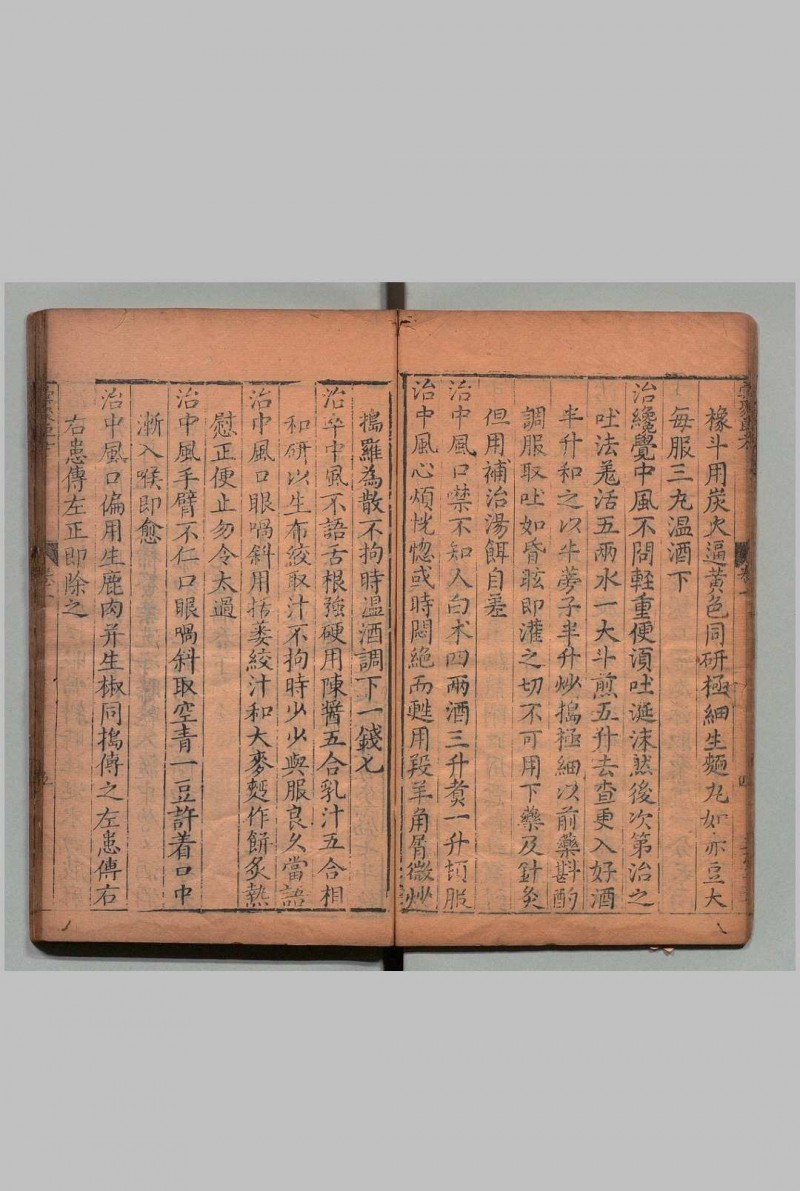 橡斗用炭火逼黃色同研極細生麵丸如赤豆大
每服三丸温酒下
治纔覺中風不問輕重便須吐涎沫然後次第治之
吐法羗活五兩水一大斗煎五升去査更入好酒
半升和之以牛蒡子半升炒搗極細以前藥斟酌
調服取吐如昏眩即灌之切不可用下藥及針灸
但用補治湯餌自差
治中風口噤不知人白术四兩酒三升煑一升頓服
治中風心煩恍惚或時悶絶而甦用羖羊角屑微炒
搗羅為散不拘時温酒調下一錢匕
治卒中風不語舌根強硬用陳醬五合乳汁五合相
和研以生布絞取汁不拘時少少與服良久當語
治中風口眼喎斜用括蔞絞汁和大麥麵作餅炙熱
慰正便止勿令太過
治中風手臂不仁口眼喎斜取空青一豆許着口中
漸入喉即愈
治中風口偏用生鹿肉并生椒同搗傅之左患傅右
右患傅左正即除之